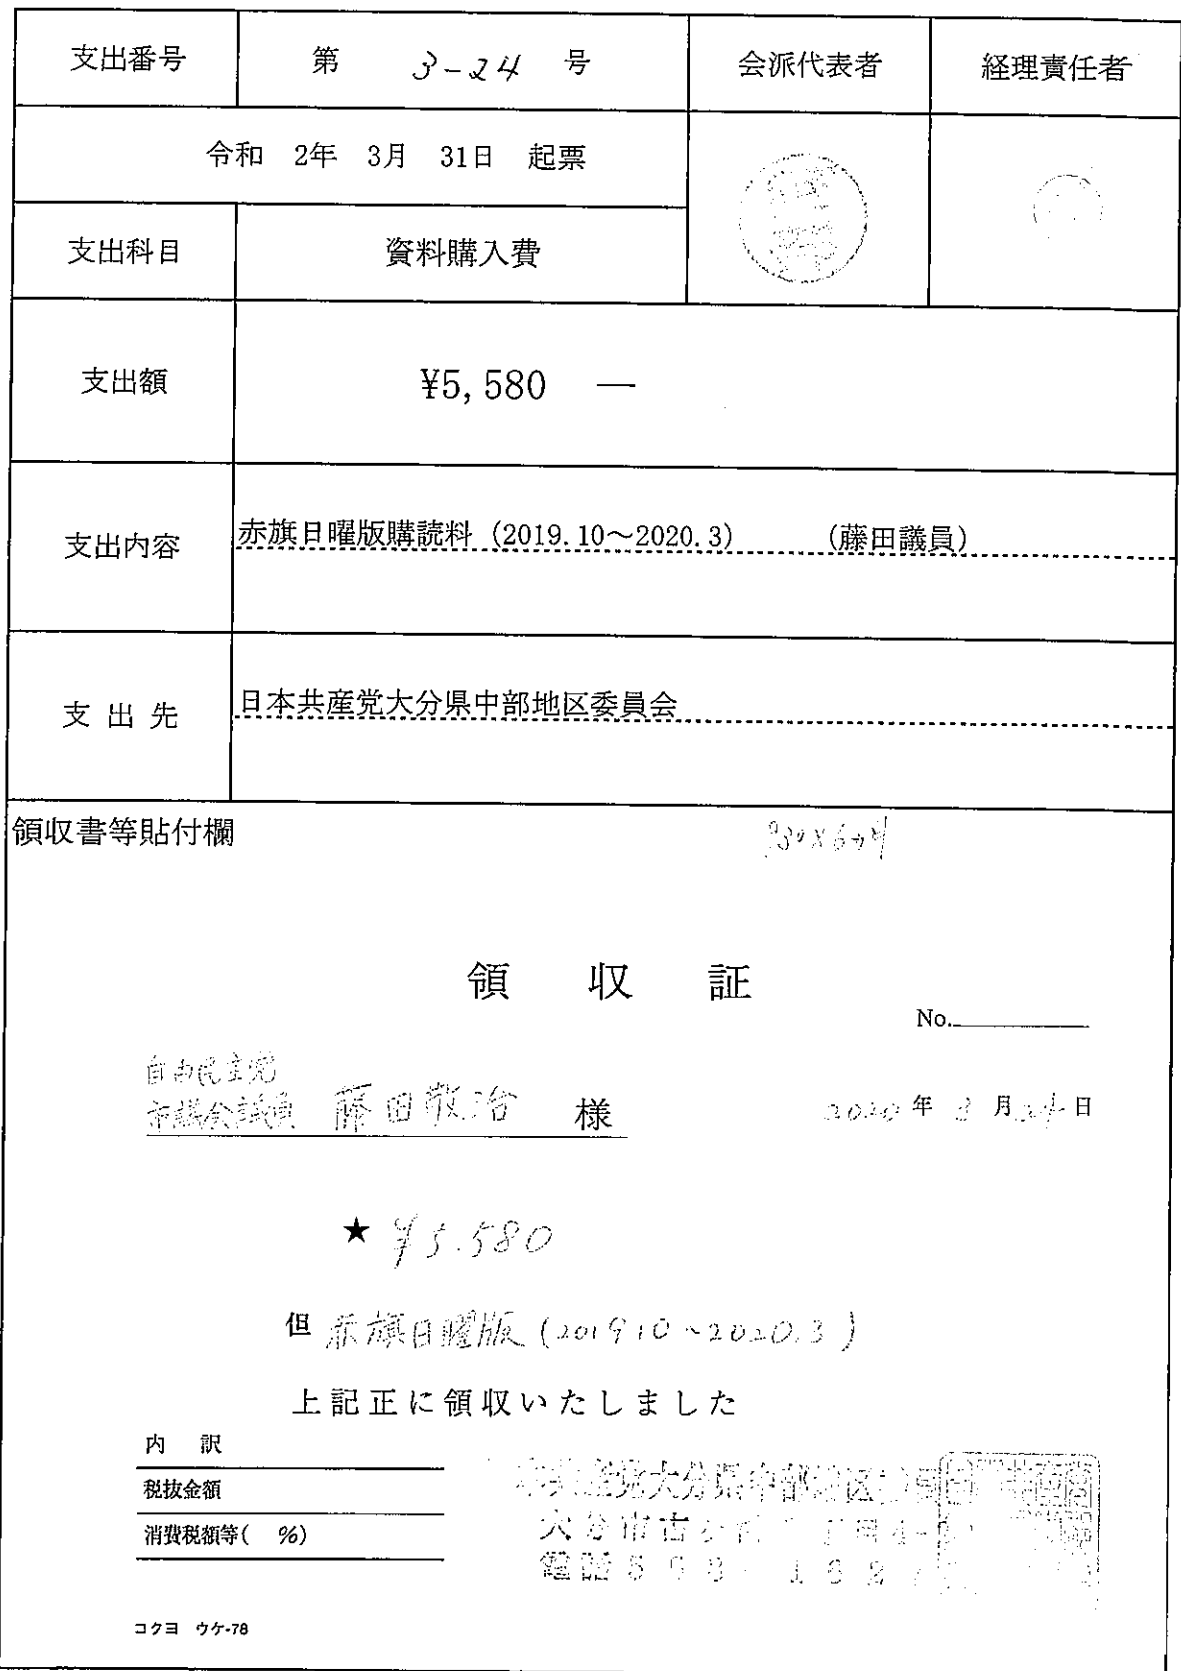 支出番号 第 3-24 号 会派代表者 経理責任者
令和 2年 3月 31日 起票
支出科目 資料購入費
支出額 ¥5,580 —
支出内容 赤旗日曜版購読料（2019.10～2020.3） （藤田議員）
支出先 日本共産党大分県中部地区委員会
領収書等貼付欄
930×6ヶ月
領収証
No.
自由民主党
市議会議員 藤田敬治 様 2020年3月24日
★ ¥5.580
但 赤旗日曜版 (2019.10~2020.3)
上記正に領収いたしました
内訳
税抜金額
消費税額等( %)
本共産党大分県中部地区
大分市古
電話
コクヨ ウケ-78